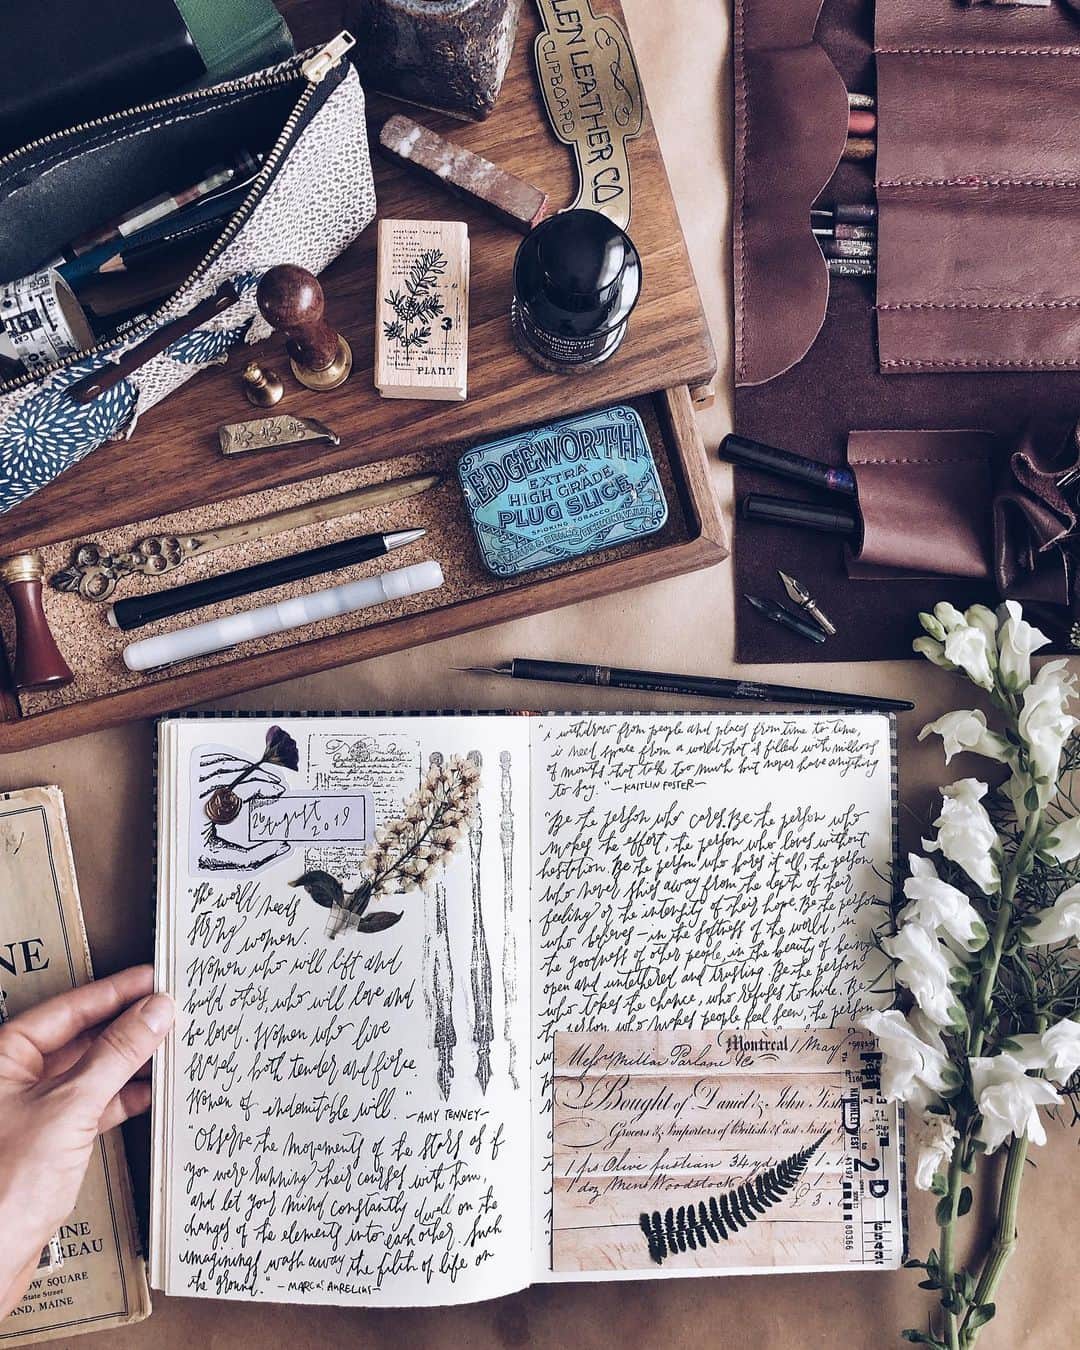 LEN LEATHER CO
CLIPBOARD
PLANT
3
EDGEWORTH
EXTRA
HIGH GRADE
PLUG SLICE
SMOKING TOBACCO
26
August
2019
"The world needs
strong
women.
Women who will lift and
build others, who will love and
be loved. Women who live
bravely, both tender and fierce.
Women of indomitable will."
—AMY TENNEY—
"Observe the movements of the stars as if
you were running their courses with them,
and let your mind constantly dwell on the
changes of the elements into each other. Such
imaginings wash away the filth of life on
the ground." —MARCUS AURELIUS—
"i withdraw from people and places from time to time,
i need space from a world that is filled with millions
of mouths that talk too much but never have anything
to say." —KAITLIN FOSTER—
"Be the person who cares. Be the person who
makes the effort, the person who loves without
hesitation. Be the person who bares it all, the person
who never shies away from the depth of their
feeling or the intensity of their hope. Be the person
who believes — in the softness of the world, in
the goodness of other people, in the beauty of being
open and untethered and trusting. Be the person
who takes the chance, who refuses to hide. Be
the person who makes people feel seen, the person
Montreal, May
Bought of Daniel & John Fish
Grocers & Importers of British & East Indi
1 ps Olive fustian 34 yd
1 doz Mens Woodstock
£ 3
2D
80366
6543
NE
INE
REAU
OW SQUARE
State Street
AND, MAINE